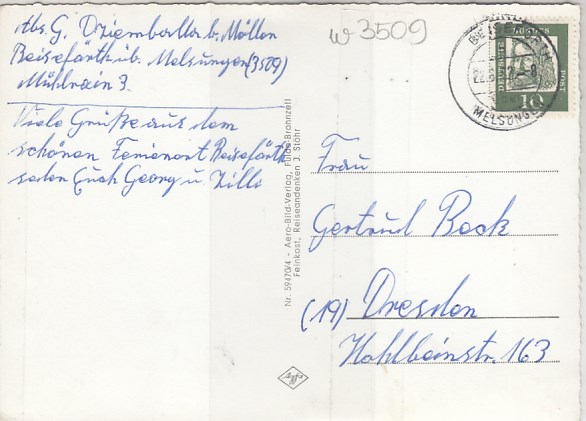 Abs. G. Dziemballa b. Möllen
Beiseförth üb. Melsungen (3509)
Mühlrain 3.
Viele Grüße aus dem
schönen Ferienort Beiseförth
senden Euch Georg u. Zilli
w 3509
DEUTSCHE BUNDESPOST
10
MELSUNGEN
Nr. 59470/4 - Aero-Bild-Verlag, Fulda-Bronnzell
Feinkost, Reiseandenken J. Stöhr
Frau
Gertrud Bock
(19) Dresden
Hohlbeinstr. 163
Agfa